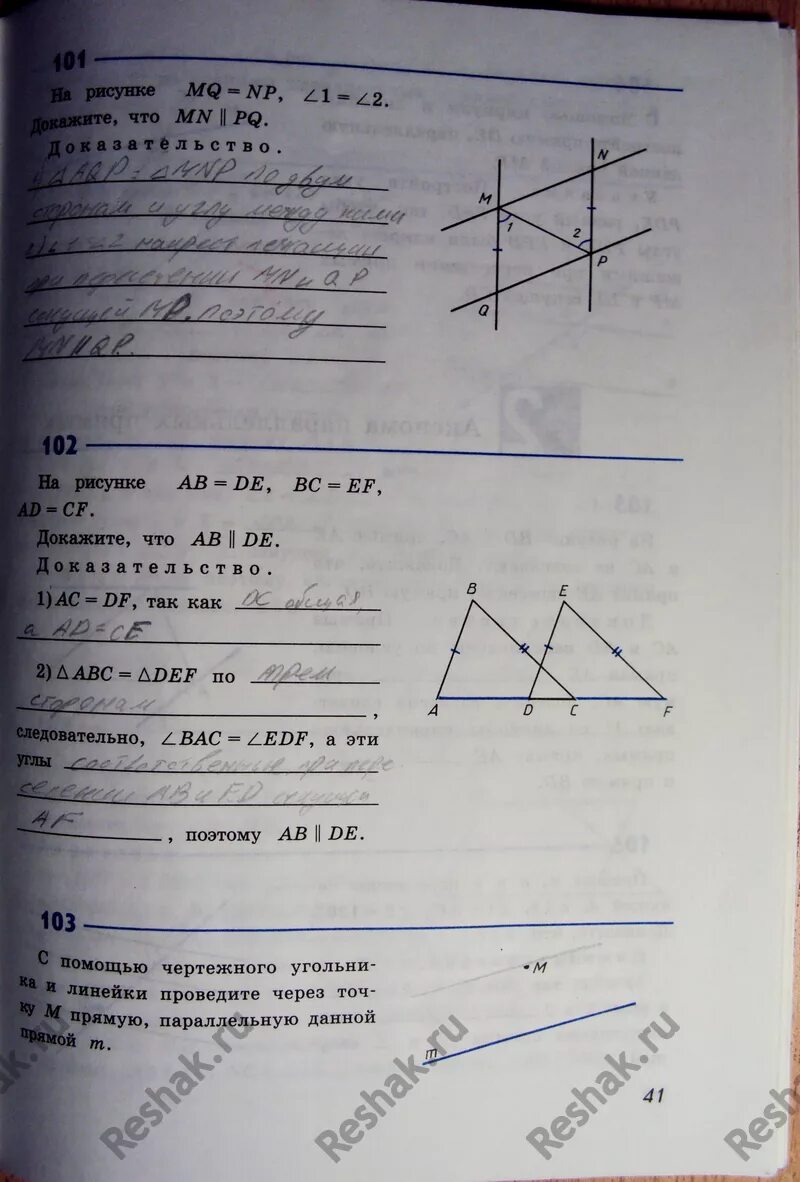 101
На рисунке MQ = NP, ∠1 = ∠2.
Докажите, что MN || PQ.
Доказательство.
MNP по двум
сторонам и углу между ними
1 = 2 накрест лежащии
при пересечении MN и QP
секущей MP. Поэтому
MN || QP.
N
M
1
2
P
Q
102
На рисунке AB = DE, BC = EF,
AD = CF.
Докажите, что AB || DE.
Доказательство.
1) AC = DF, так как DC общая,
а AD = CF
2) △ABC = △DEF по трем
сторонам,
следовательно, ∠BAC = ∠EDF, а эти
углы соответственные при пере
сечении AB и ED секущей
AF, поэтому AB || DE.
B
E
A
D
C
F
103
С помощью чертежного угольни-
ка и линейки проведите через точ-
ку M прямую, параллельную данной
прямой m.
M
m
41
Reshak.ru
Reshak.ru
Reshak.ru